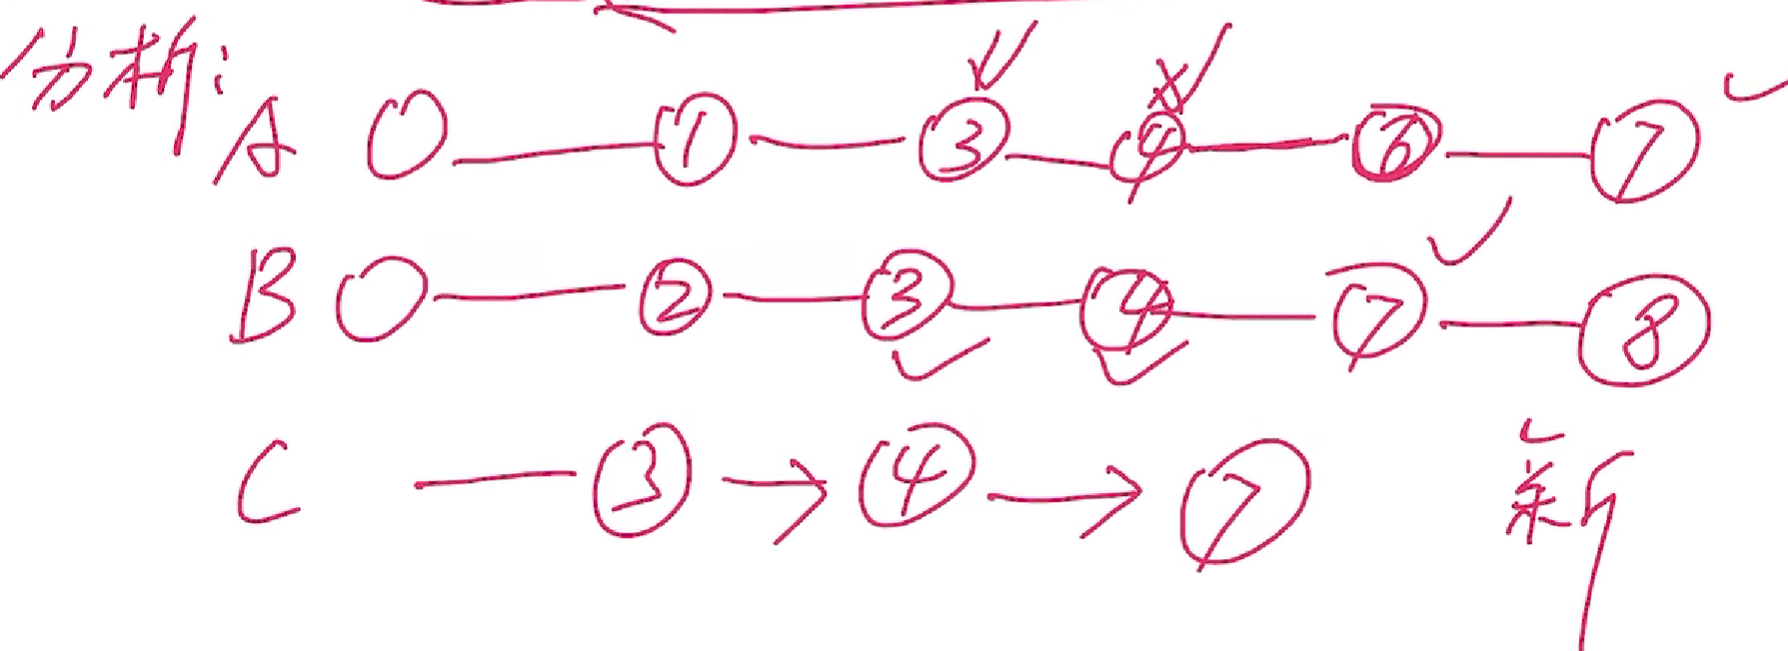 分析:
A ○ — ① — ③ — ④ — ⑥ — ⑦
B ○ — ② — ③ — ④ — ⑦ — ⑧
C — ③ → ④ → ⑦ 新